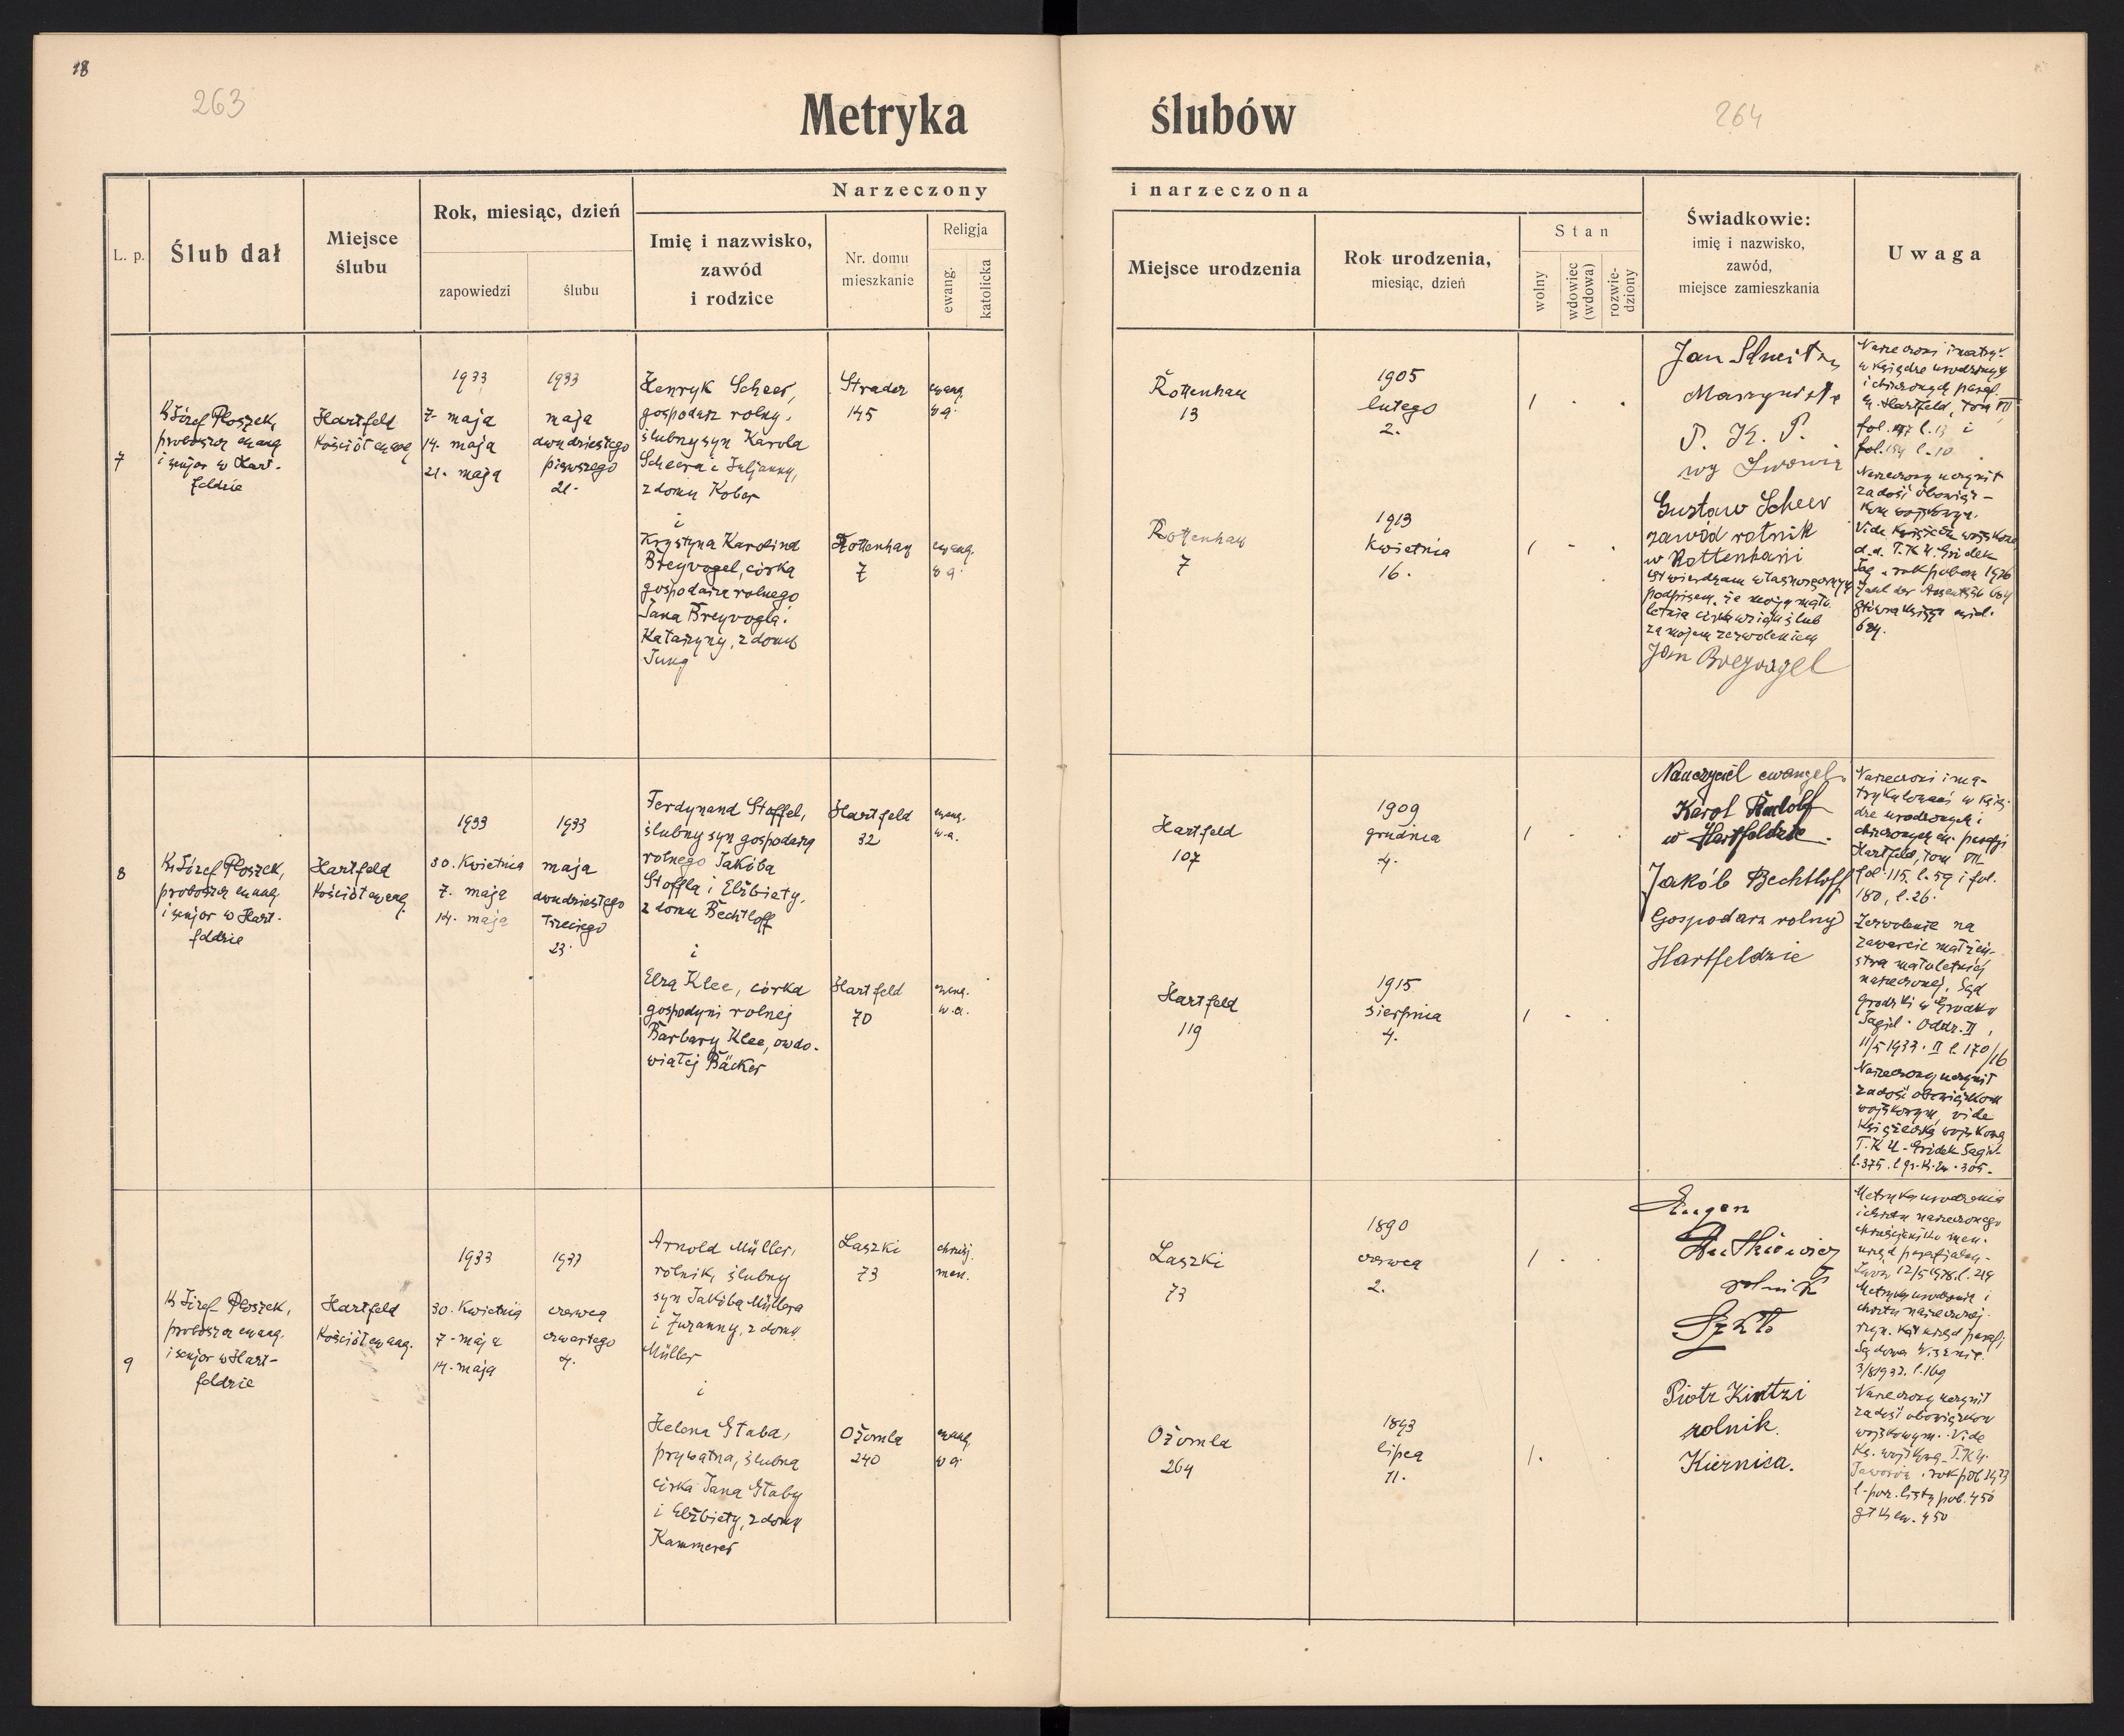 18
263
264
Metryka ślubów
Narzeczony i narzeczona
L. p.
Ślub dał
Miejsce
ślubu
Rok, miesiąc, dzień
zapowiedzi
ślubu
Imię i nazwisko,
zawód
i rodzice
Nr. domu
mieszkanie
Religja
ewang.
katolicka
Miejsce urodzenia
Rok urodzenia,
miesiąc, dzień
Stan
wolny
wdowiec
(wdowa)
rozwie-
dziony
Świadkowie:
imię i nazwisko,
zawód,
miejsce zamieszkania
Uwaga
7
Ks Józef Płoszek,
proboszcz ewang
i senjor w Hart-
feldzie
Hartfeld
Kościół ewang
1933
7- maja
14. maja
21. maja
1933
maja
dwudziestego
pierwszego
21.
Henryk Scheer,
gospodarz rolny,
ślubny syn Karola
Scheera i Juljanny,
z domu Kober
i
Krystyna Karolina
Breyvogel, córka
gospodarza rolnego
Jana Breyvogla i
Katarzyny, z domu
Jung
Stradcz
145
ewang.
w a.
Rottenhan
7
ewang.
w a.
Rottenhan
13
1905
lutego
2.
1
Rottenhan
7
1913
kwietnia
16.
1
Jan
Maszynista
P. K. P.
we Lwowie
Gustaw Scheer
zawód rolnik
w Rottenhani
Stwierdzam własnoręcznym
podpisem, że moja mało-
letnia córka wzięła ślub
za mojem zezwoleniem
Jan Breyvogel
Narzeczeni imatryk.
w księdze urodzonych
i chrzczonych paraf.
w. Hartfeld, tom VII
fol. 147 l. 13 i
fol. 184 l. 10
Narzeczony uczynił
zadość obowiąz-
kom wojskowym.
Vide książeczka wojskowa
d.d. T.K.U. Gródek
Jag., rok poborn 1926
8
Ks Józef Płoszek,
proboszcz ewang.
i senjor w Hart-
feldzie
Hartfeld
Kościół ewang.
1933
30. kwietnia
7. maja
14. maja
1933
maja
dwudziestego
trzeciego
23.
Ferdynand Stoffel,
ślubny syn gospodarza
rolnego Jakóba
Stoffla i Elżbiety,
z domu Bechtloff
i
Elza Klee, córka
gospodyni rolnej
Barbary Klee, owdo-
wiałej Bäcker
Hartfeld
32
ewang.
w. a.
Hartfeld
70
ewang.
w. a.
Hartfeld
107
1909
grudnia
4.
1
Hartfeld
119
1915
sierpnia
4.
1
Nauczyciel ewangel.
Karol Rudolf
w Hartfeldzie.
Jakób Bechtloff
Gospodarz rolny
Hartfeldzie
Narzeczeni ima-
trykulowani w księ-
dze urodzonych i
chrzczonych ew. parafji
Hartfeld, tom VII
fol. 115. l. 59 i fol.
180, l. 26.
Zezwolenie na
zawarcie małżeń-
stwa małoletniej
narzeczonej, Sąd
grodzki w Gródku
Jagiel. Oddz. II,
11/5 1933. II l. 170/16
Narzeczony uczynił
zadość obowiązkom
wojskowym, vide
książeczka wojskowa
T.K.U. Gródek Jagiel.
l. 375. l. gł. k. ew. 305.
9
Ks Józef Płoszek,
proboszcz ewang.
i senjor w Hart-
feldzie
Hartfeld
Kościół ewang.
1933
30. kwietnia
7. maja
14. maja
1933
czerwca
czwartego
4.
Arnold Müller,
rolnik, ślubny
syn Jakóba Müllera
i Zuzanny, z domu
Müller
i
Helena Staba,
prywatna, ślubna
córka Jana Staby
i Elżbiety, z domu
Kammerer
Laszki
73
chrześc.
men.
Ożomla
240
ewang.
w a.
Laszki
73
1890
czerwca
2.
1
Ożomla
264
1893
lipca
11.
1.
Eugen
rolnik
Szkło
Piotr Kintzi
rolnik.
Kiernica.
Metryka urodzenia
i chrztu narzeczonego
men.
urząd parafjalny
Lwów 12/5 1928. l. 219
Metryka urodzenia i
chrztu narzeczonej
rzym. kat urząd paraf.
Sądowa Wisznia.
3/8 1932. l. 169
Narzeczony uczynił
zadość obowiązkom
wojskowym. Vide
Ks. wojskowa T.K.U.
Jaworów